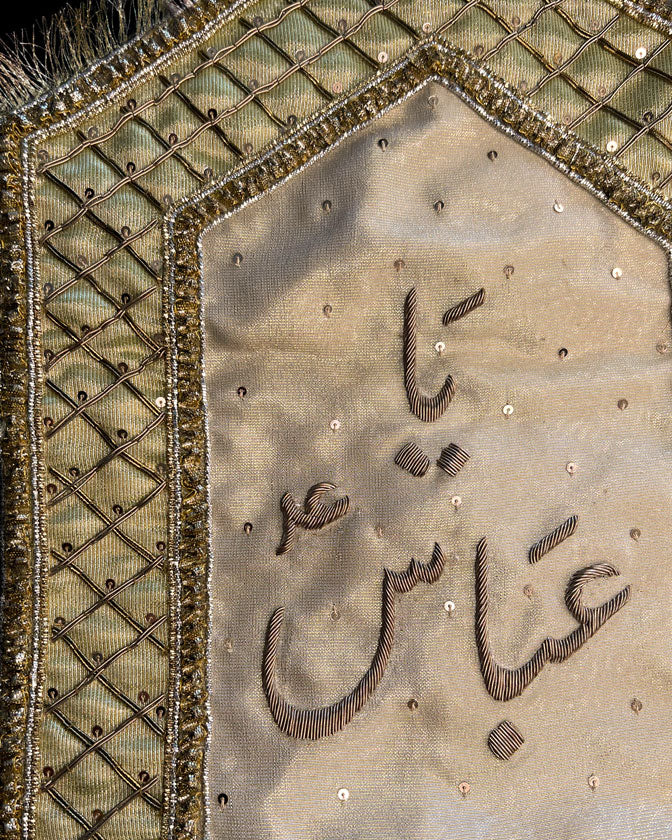 يَا
عَباسؑ